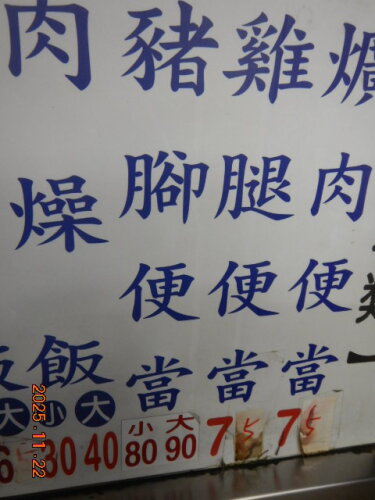 飯
大
肉燥飯
小 大
30 40
豬腳便當
小 大
80 90
雞腿便當
75
爌肉便當
75
2025.11.22